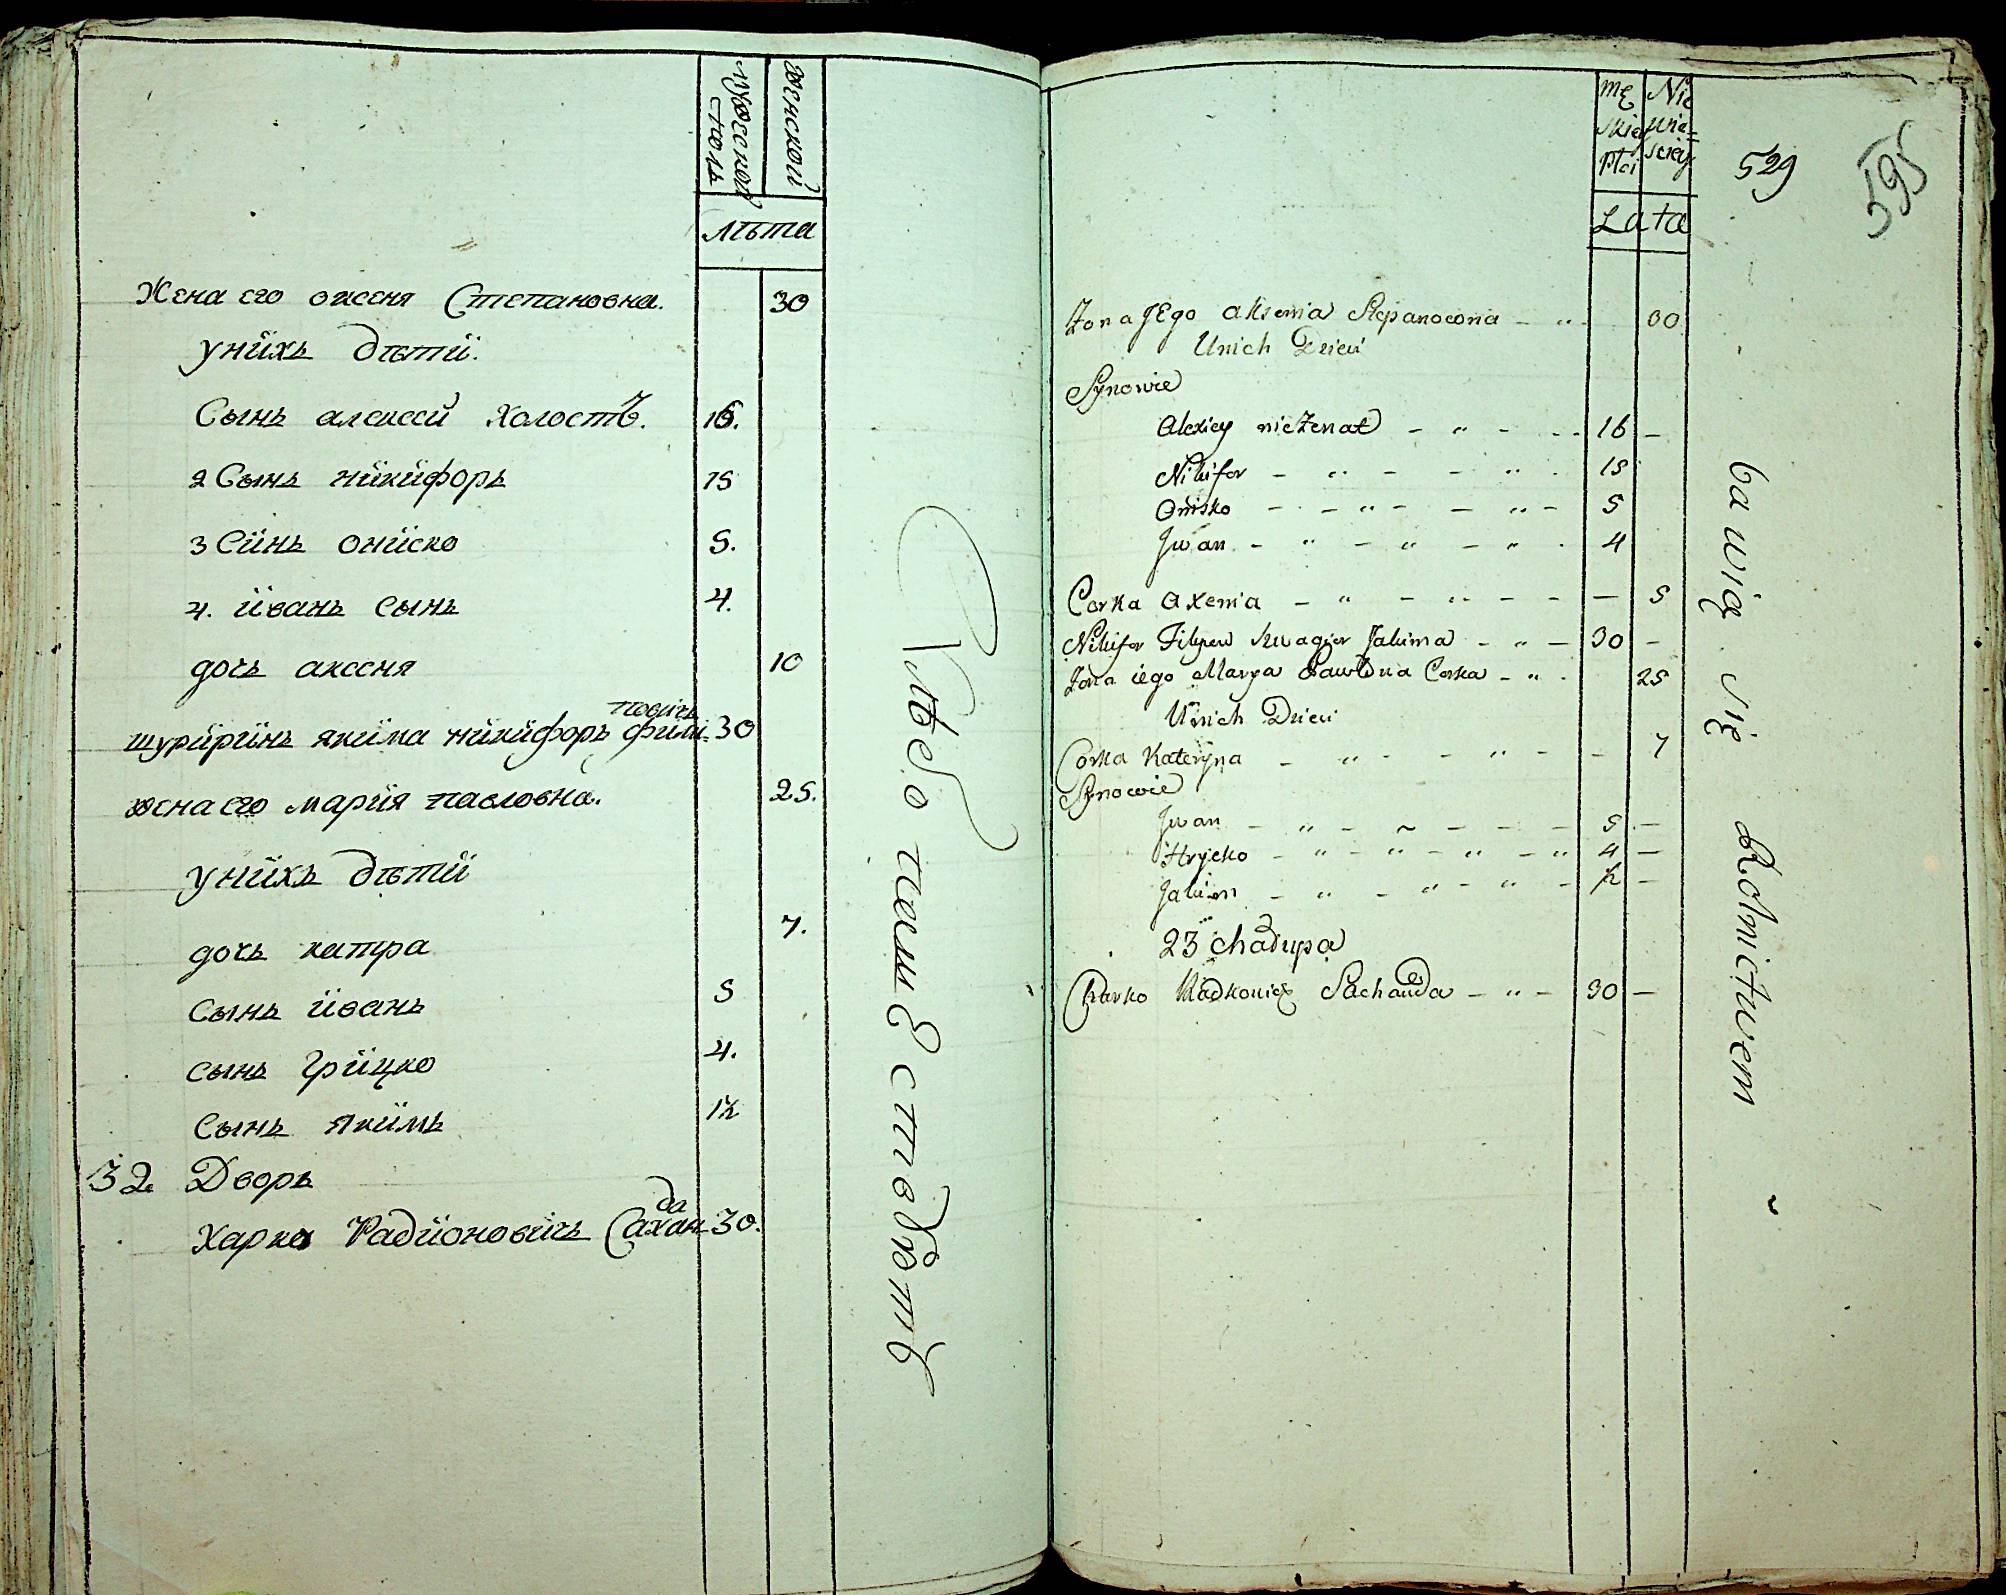 мужеской
полъ
женской
лѣта
Жена его оксеня Степановна. 30
унихъ дѣти.
Сынъ алексей холостъ. 16.
2 Сынъ никифоръ 15
3 Синъ ониско 5.
4. иванъ сынъ 4.
дочь аксеня 10
шуриринъ якима никифоръ фили 30
повичъ
жена его мария павловна. 25.
унихъ дѣти
дочь катра 7.
сынъ иванъ 5
сынъ грицко 4.
Сынъ якимъ 1½
32. Дворъ
Харко Радионовичъ Сахан 30.
да
mę
skiey
Płci
Nie
wie-
sciey
Lata
529
595
Zona JEgo aksenia Stepanowna 30
Unich Dzieci
Synowie
Alexiey nieżenat 16
Nikifor 15
Onisko 5
Jwan 4
Corka Axenia 5
Nikifor Filipow szwagier Jakima 30
Zona iego Marya Pawłowna Corka 25
Unich Dzieci
Corka Kateryna 7
Synowie
Jwan 5
Hrycko 4
Jakim ½
23 chałupa
Charko Radkowicz Sachanda 30
bawią się Rolnictwem